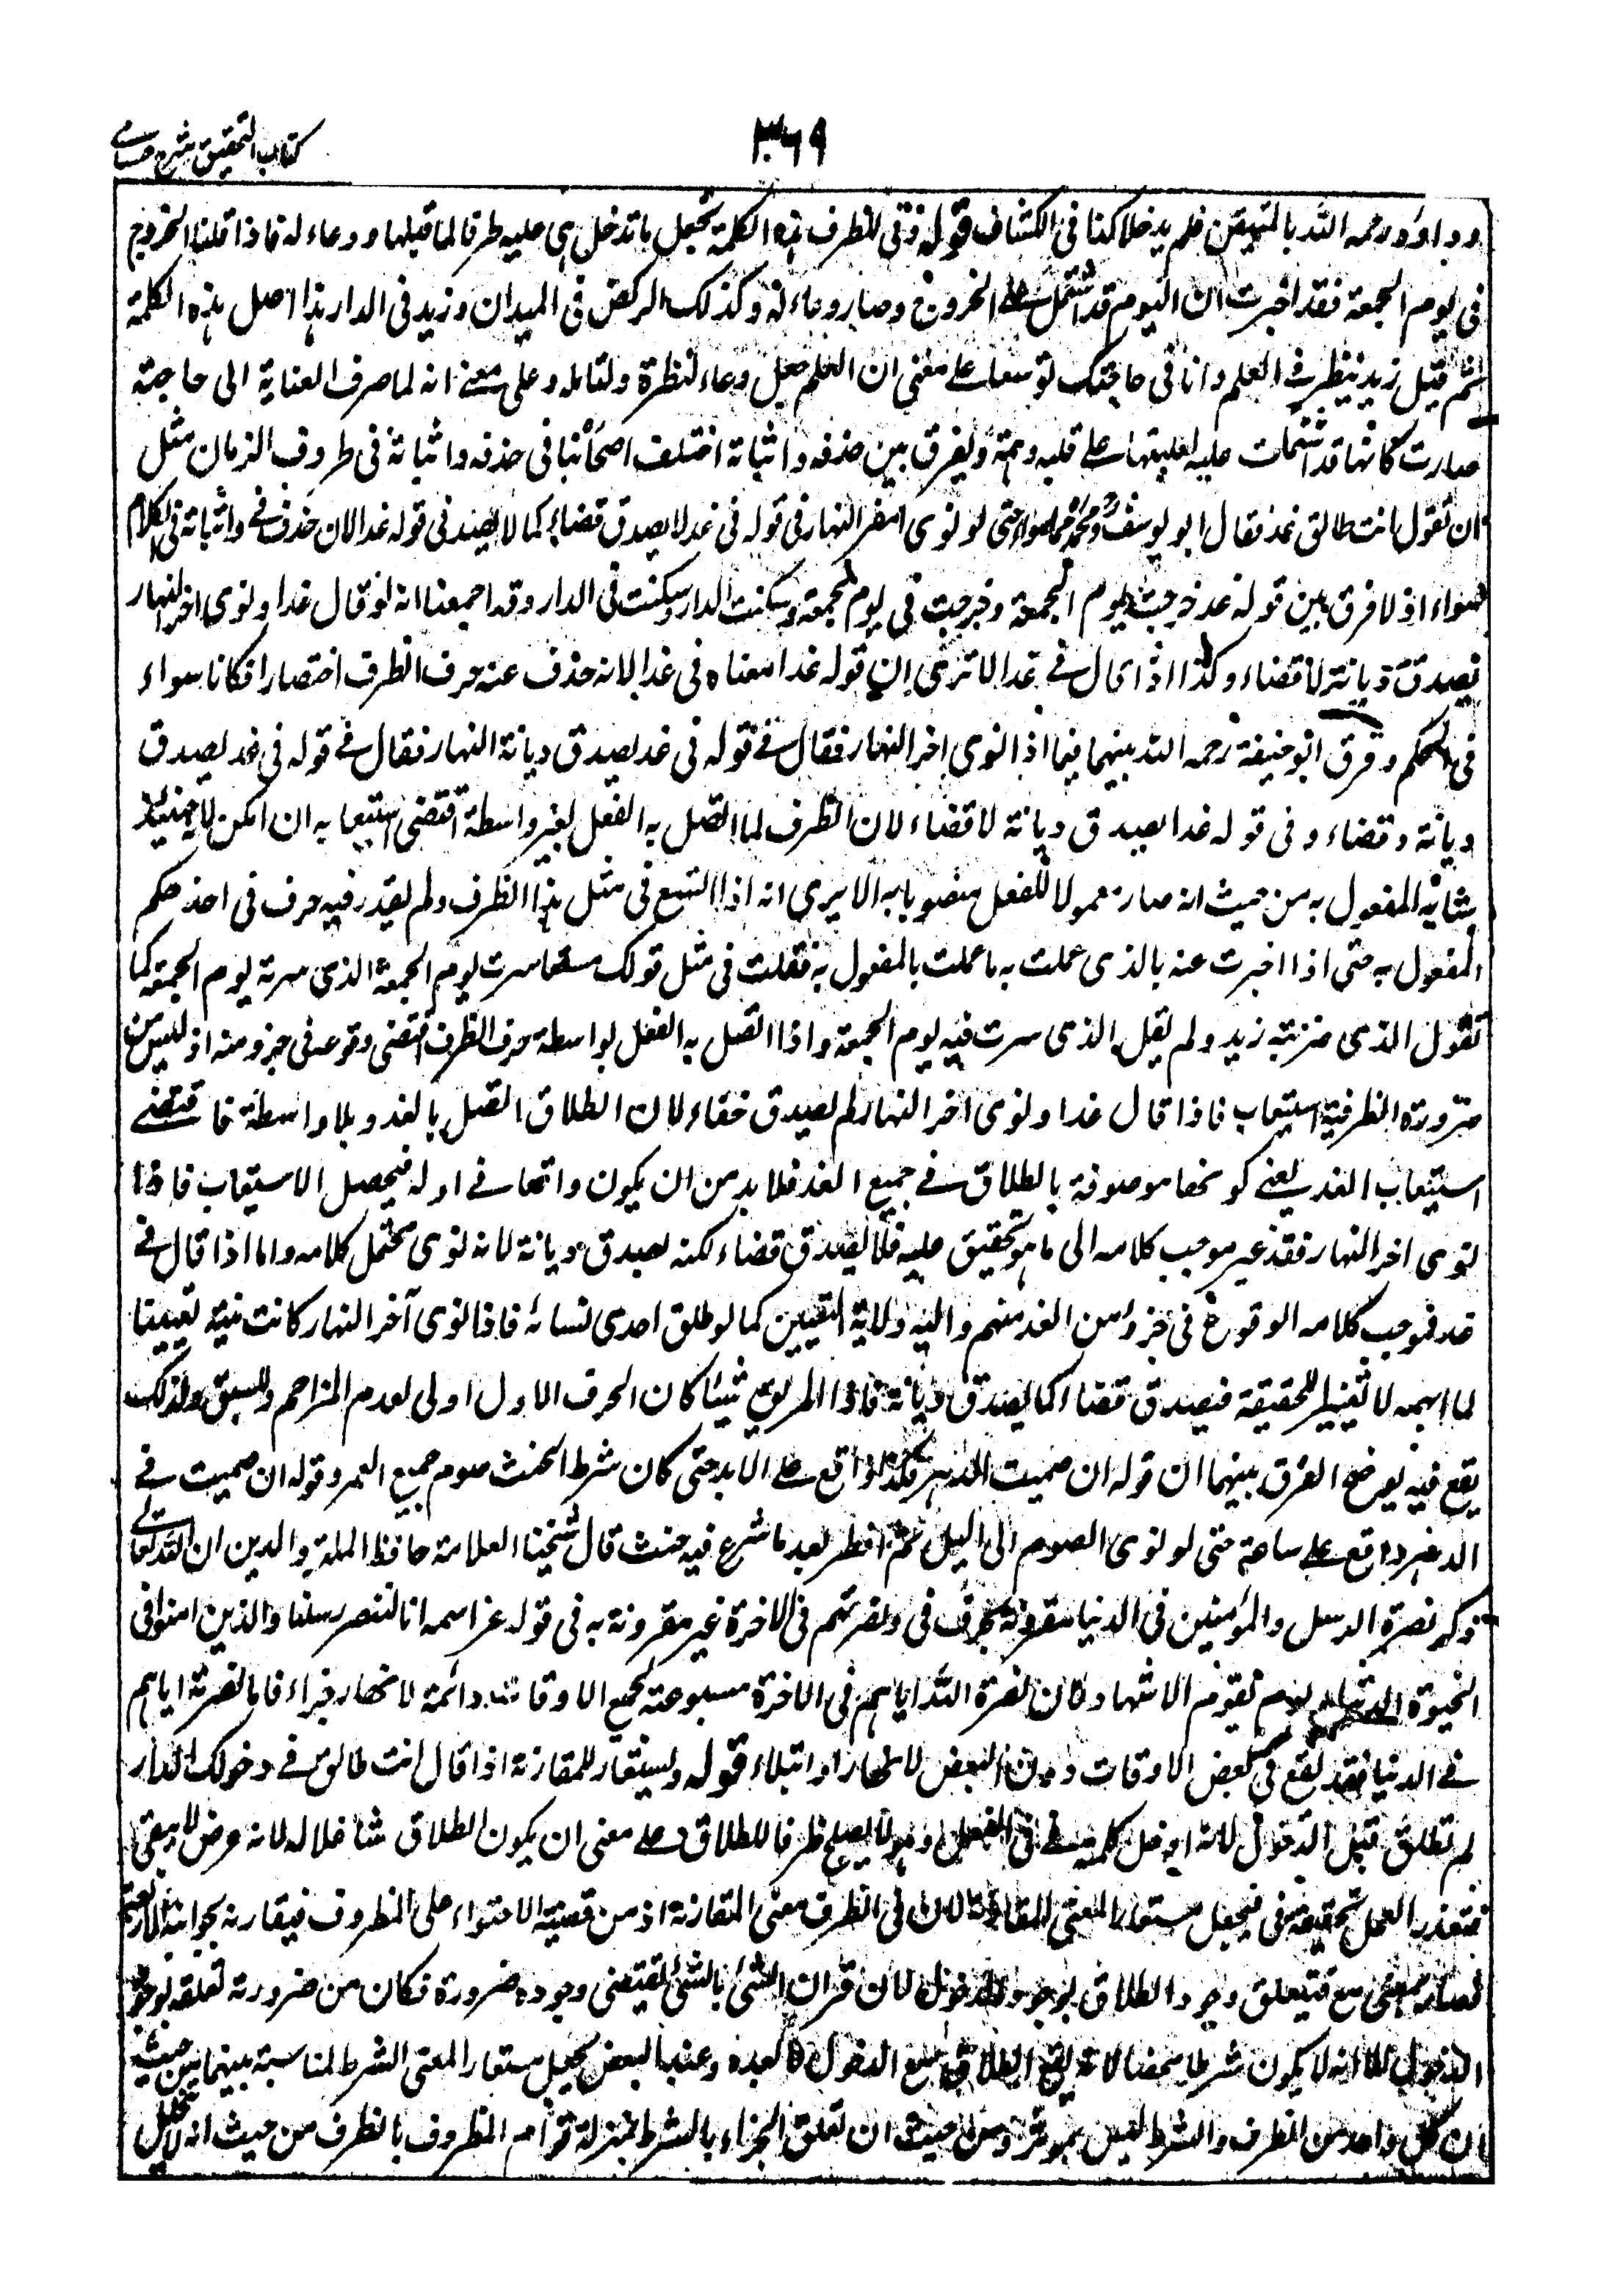 كتاب التحقيق شرح حسامى
٣٦٩
وداؤد رحمه الله بالمتيقن فلم يدخلا كذا فى الكشاف قوله وفى للظرف هذه الكلمة تجعل ما تدخل هى عليه ظرفا لما قبلها ووعاء له فاذا قلنا الخروج
فى يوم الجمعة فقد اخبرت ان اليوم قد اشتمل على الخروج وصار وعاء له وكذلك الركض فى الميدان وزيد فى الدار هذا اصل هذه الكلمة
ثم قيل زيد ينظر فى العلم وانا فى حاجتك توسعا على معنى ان العلم جعل وعاء لنظره وتامله وعلى معنى انه لما صرف العناية الى حاجته
صارت كانها قد اشتملت عليه لغلبتها على قلبه وهمه ويفرق بين حذفه واثباته اختلف اصحابنا فى حذفه واثباته فى ظروف الزمان مثل
ان تقول انت طالق غد فقال ابو يوسف ومحمد هما سواء حتى لو نوى اخر النهار فى قوله فى غد لا يصدق قضاء كما لا يصدق فى قوله غدا لان حذف فى واثباته فى الكلام
سواء اذ لا فرق بين قوله غد خرجت يوم الجمعة وخرجت فى يوم الجمعة وسكنت الدار وسكنت فى الدار وقد اجمعنا انه لو قال غدا ونوى اخر النهار
يصدق ديانة لا قضاء وكذا اذا قال فى غد الا ترى ان قوله غدا معناه فى غد الا انه حذف عنه حرف الظرف اختصارا فكانا سواء
فى الحكم وفرق ابو حنيفة رحمه الله بينهما فيما اذا نوى اخر النهار فقال فى قوله فى غد يصدق ديانة النهار فقال فى قوله فى غد يصدق
ديانة وقضاء وفى قوله غدا يصدق ديانة لا قضاء لان الظرف لما اتصل به الفعل بغير واسطة اقتضى استيعابه ان امكن لانه حينئذ
يشابه المفعول به من حيث انه صار معمولا للفعل منصوبا به الا يرى انه اذا اتسع فى مثل هذا الظرف ولم يقدر فيه حرف فى اخذ حكم
المفعول به حتى اذا اخبرت عنه بالذى عملت به ما عملت بالمفعول به فقلت فى مثل قولك متسعا سرت يوم الجمعة الذى سرته يوم الجمعة كما
تقول الذى ضربته زيد ولم يقل الذى سرت فيه يوم الجمعة واذا اتصل به الفعل بواسطة حرف الظرف اقتضى وقوعه فى جزء منه اذ ليس من
ضرورة الظرفية استيعاب فاذا قال غدا ونوى اخر النهار لم يصدق قضاء لان الطلاق اتصل بالغد وبلا واسطة فاقتضى
استيعاب الغد يعنى كونها موصوفة بالطلاق فى جميع الغد فلا بد من ان يكون واقعا فى اوله فيحصل الاستيعاب فاذا
نوى اخر النهار فقد غير موجب كلامه الى ما هو تخفيف عليه فلا يصدق قضاء لكنه يصدق ديانة لانه نوى محتمل كلامه واما اذا قال فى
غد فموجب كلامه الوقوع فى جزء من الغد منهم واليه ولاية التعيين كما لو طلق احدى نسائه فاذا نوى آخر النهار كانت نيته تعيينا
لما ابهمه لا تغييرا للحقيقة فيصدق قضاء كما يصدق ديانة فاذا لم ينو شيئا كان الحرف الاول اولى لعدم المزاحم والسبق ولذلك
يقع فيه يوضح الفرق بينهما ان قوله ان صمت الدهر فكذا واقع على الابد حتى كان شرط الحنث صوم جميع العمر وقوله ان صمت فى
الدهر واقع على ساعة حتى لو نوى الصوم الى اليل ثم افطر بعد ما شرع فيه حنث قال شيخنا العلامة حافظ الملة والدين ان الله تعالى
ذكر نصرة الرسل والمؤمنين فى الدنيا مقرونة بحرف فى ونصرتهم فى الاخرة غير مقرونة به فى قوله عز اسمه انا لننصر رسلنا والذين امنوا فى
الحيوة الدنيا ويوم يقوم الاشهاد لان نصرة الله اياهم فى الاخرة مستوعبة لجميع الاوقات دائمة لانها دار جزاء فاما نصرته اياهم
فى الدنيا فقد تقع فى بعض الاوقات دون البعض لانها دار ابتلاء قوله ويستعار للمقارنة اذا قال انت طالق فى دخولك الدار
لم تطلق قبل الدخول لانه ادخل كلمة فى فى الفعل وهو لا يصلح ظرفا للطلاق على معنى ان يكون الطلاق شاغلا له لانه عرض لا يبقى
فتعذر العمل بحقيقة فى فيجعل مستعارا لمعنى المقارنة لان فى الظرف معنى المقارنة اذ من قضية الاحتواء على المظروف فيقارنه بجوانبه الاربعة
فصار بمعنى مع فيتعلق وجود الطلاق بوجود الدخول لان قران الشئ بالشئ يقتضى وجوده ضرورة فكان من ضرورته تعلقه بوجود
الدخول الا انه لا يكون شرطا محضا لانه يقع الطلاق مع الدخول لا بعده وعند البعض يجعل مستعارا لمعنى الشرط لمناسبة بينهما من حيث
ان كل واحد من الظرف والشرط ليس بموثر ومن حيث ان تعلق الجزاء بالشرط بمنزلة قوام المظروف بالظرف من حيث انه لا